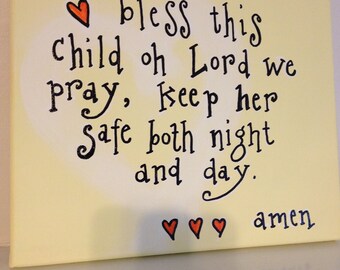 bless this
child oh Lord we
pray, keep her
safe both night
and day.
amen